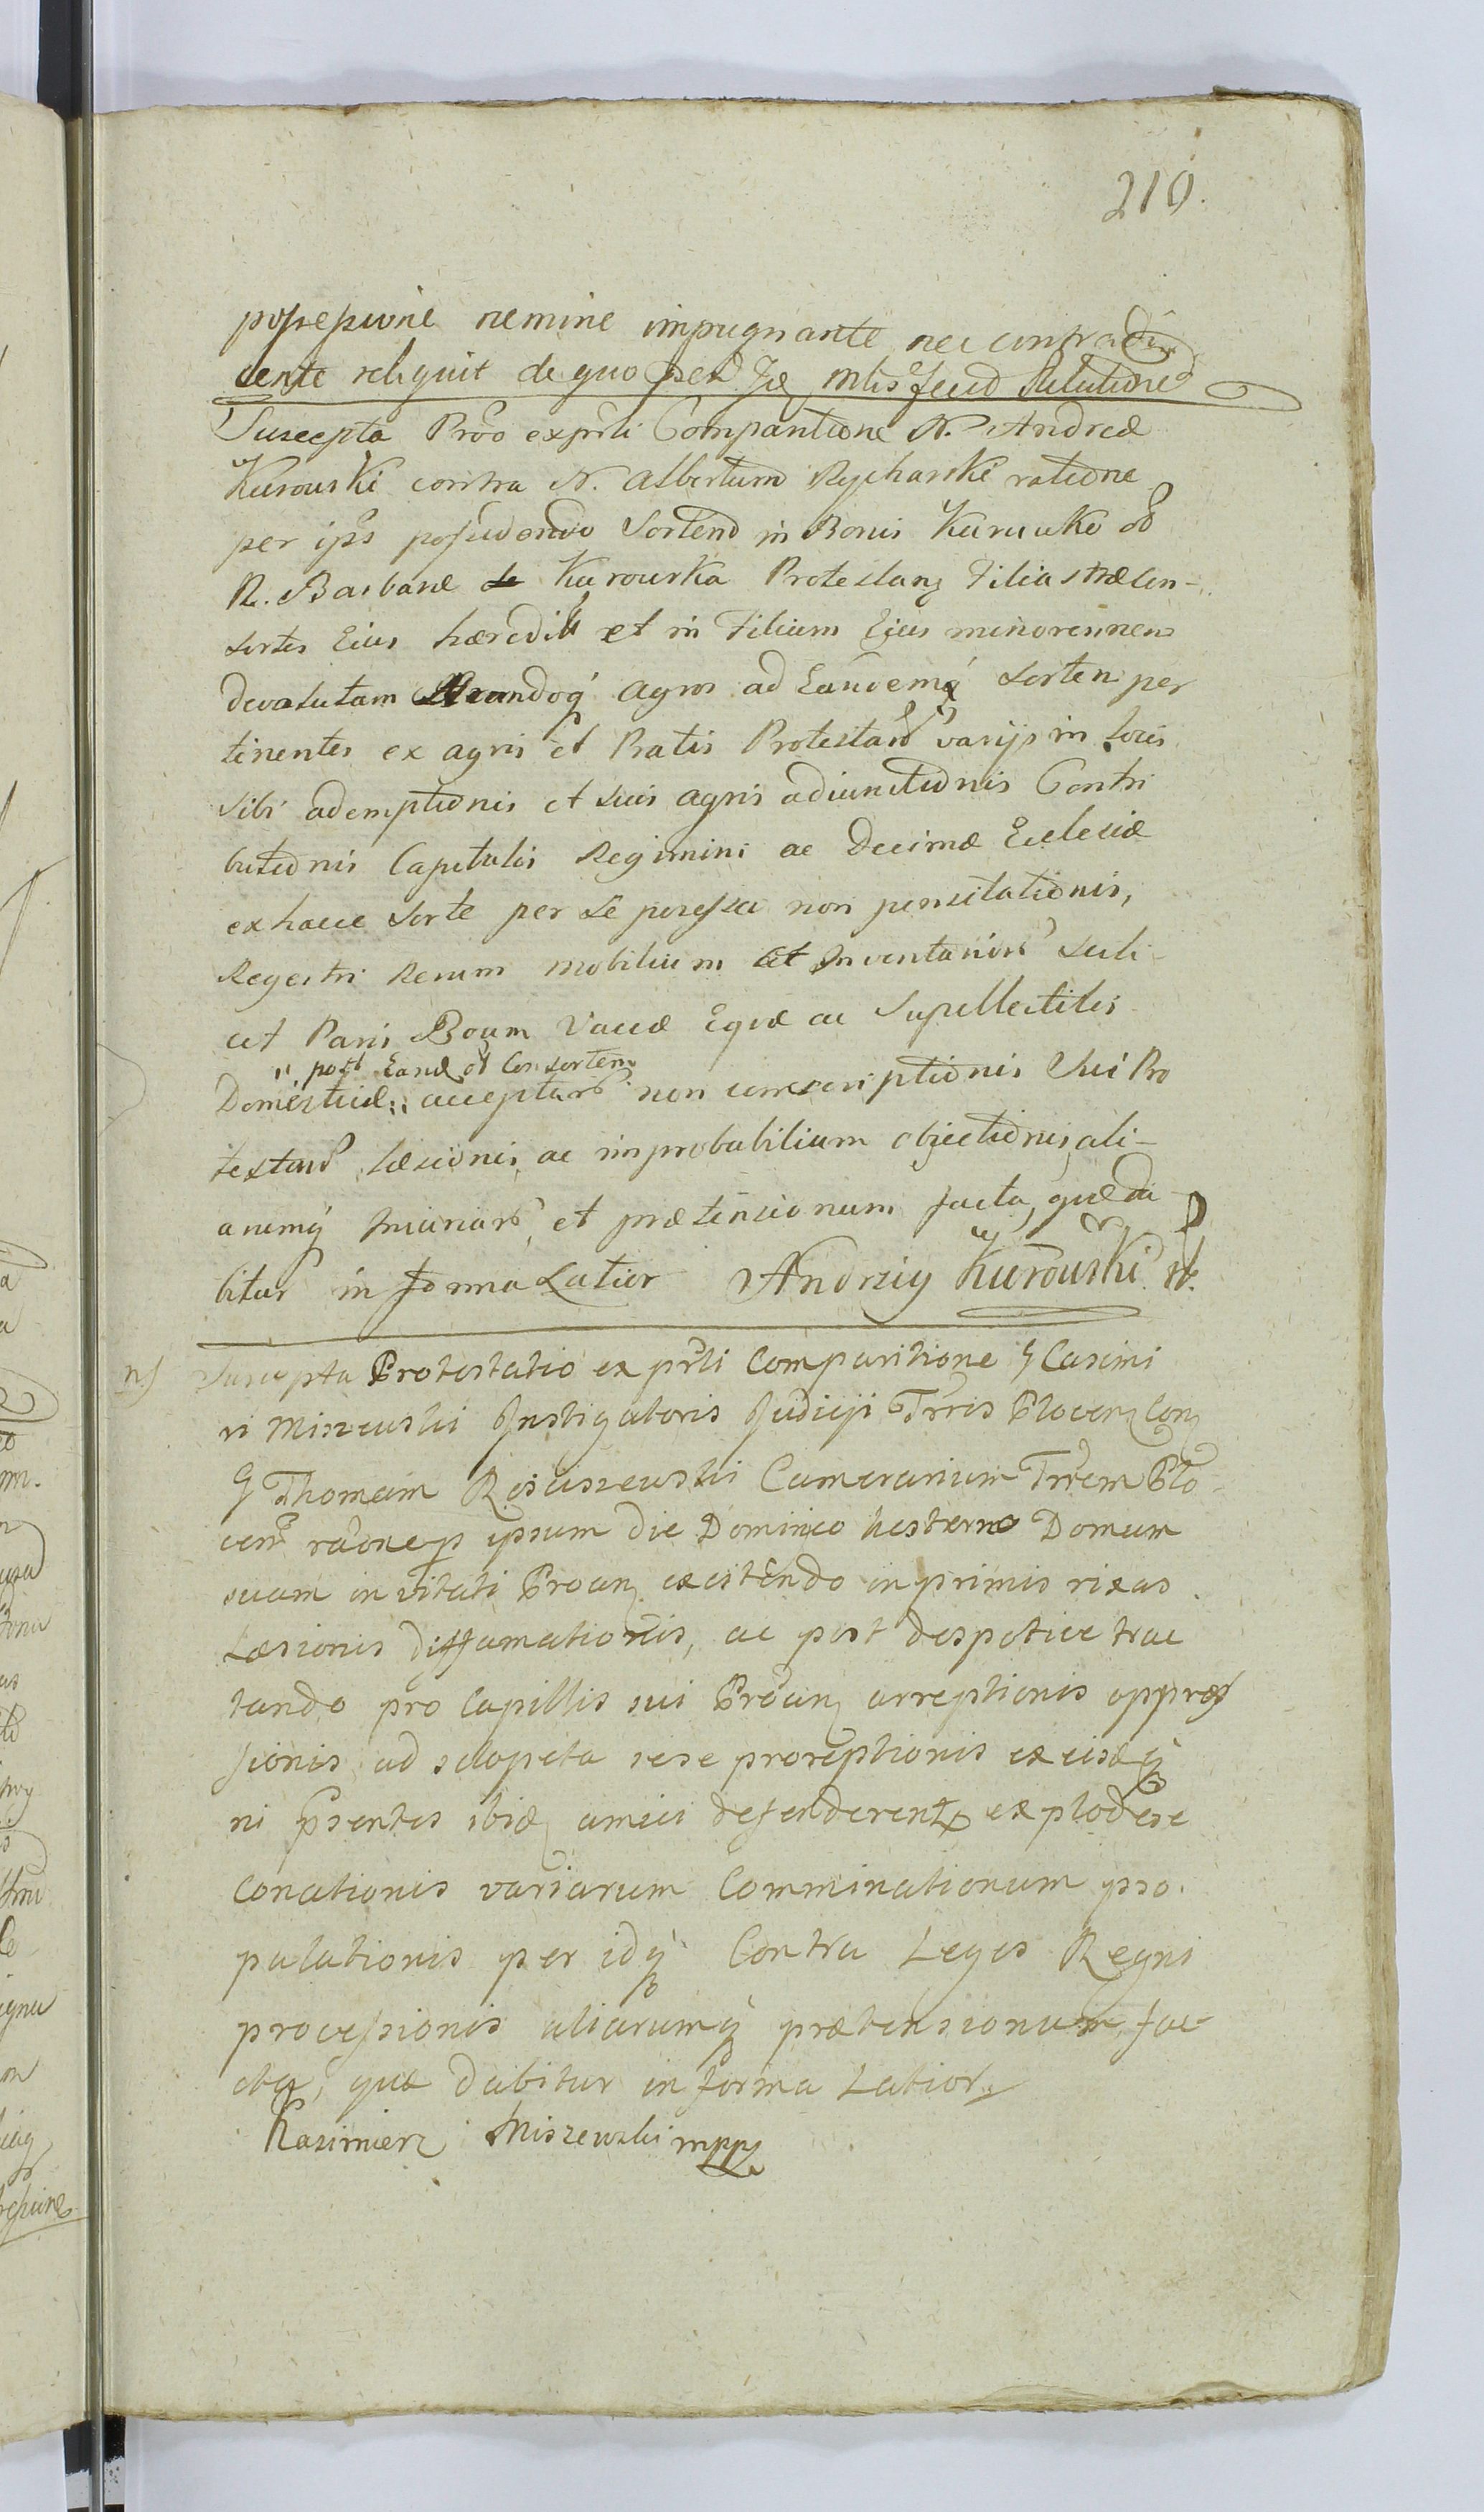 210.
possessione nemine impugnante nec contradi
cente reliquit de quo Relatione
Suscepta Prõo ex prli Comparitione N. Andreæ
Kurowski contra N. Albertum Rycharski ratione
per ips possidendo Sortem in Bonis Kurowko
N. Barbaræ de Kurowska Protestanz Filia Con-
sortis Eius hæredit et in Filium Eius minorennem
devolutam agros ad Eandemq sortem per
tinentes ex agris et Pratis Protestand varijs in locis
sibi ademptionis et suis agris adiunctionis Contri
butionis Capitalis Regimini ac Decimæ Ecclesiæ
ex hacce sorte per se possessa non pensitationis,
Regestri Rerum mobilium et Inventarior scili-
cet Paris Boum Vaccæ Equæ ac Supellectilis
,, post Eand Consortem
Domesticæ ,, acceptar non conscriptionis Sui Pro
testand læsionis, ac improbabilium objectionis, ali-
arumq Iniuriar, et prætensionum facta, quæ da
bitur in forma Latior Andrzey Kurowski
n)
Suscepta Protestatio ex prli Comparitione G Casimi
ri Miszewski Instigatoris Judicji Trris Plocenz Conz
G Thomam Rosciszewski Camerarium Trrem Plo-
cen raõne p ipsum die Dominico hesterno Domum
suam invitati Proanz excitendo inprimis rixas
Læsionis diffamationis, ac post despotice trac
tando pro Capillis sui Proanz arreptionis oppres
sionis ad sclopeta sese proreptionis ex eisq
ni psentes ibidz amici defenderent explodere
Conationis variarum Comminationum pro.
palationis per idq Contra Leges Regni
processionis aliarumq prætensionum fac-
cta, quæ dabitur in forma Latior
Kazimierz Miszewski mpp